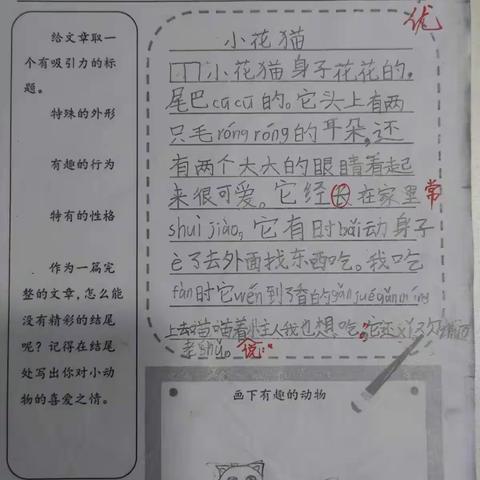 优
给文章取一
个有吸引力的标
题。
特殊的外形
有趣的行为
特有的性格
作为一篇完
整的文章,怎么能
没有精彩的结尾
呢?记得在结尾
处写出你对小动
物的喜爱之情。
小花猫
小花猫身子花花的,
尾巴cū cū的。它头上有两
只毛róng róng的耳朵,还
有两个大大的眼睛看起
来很可爱。它经 在家里常
shuì jiào,它有时bǎi动身子
è了去外面找东西吃。我吃
fàn时它wén到了香的gǎn jué gǎn míng
上去喵喵着 主人我也想吃。它还
老shǔ。说:“
画下有趣的动物